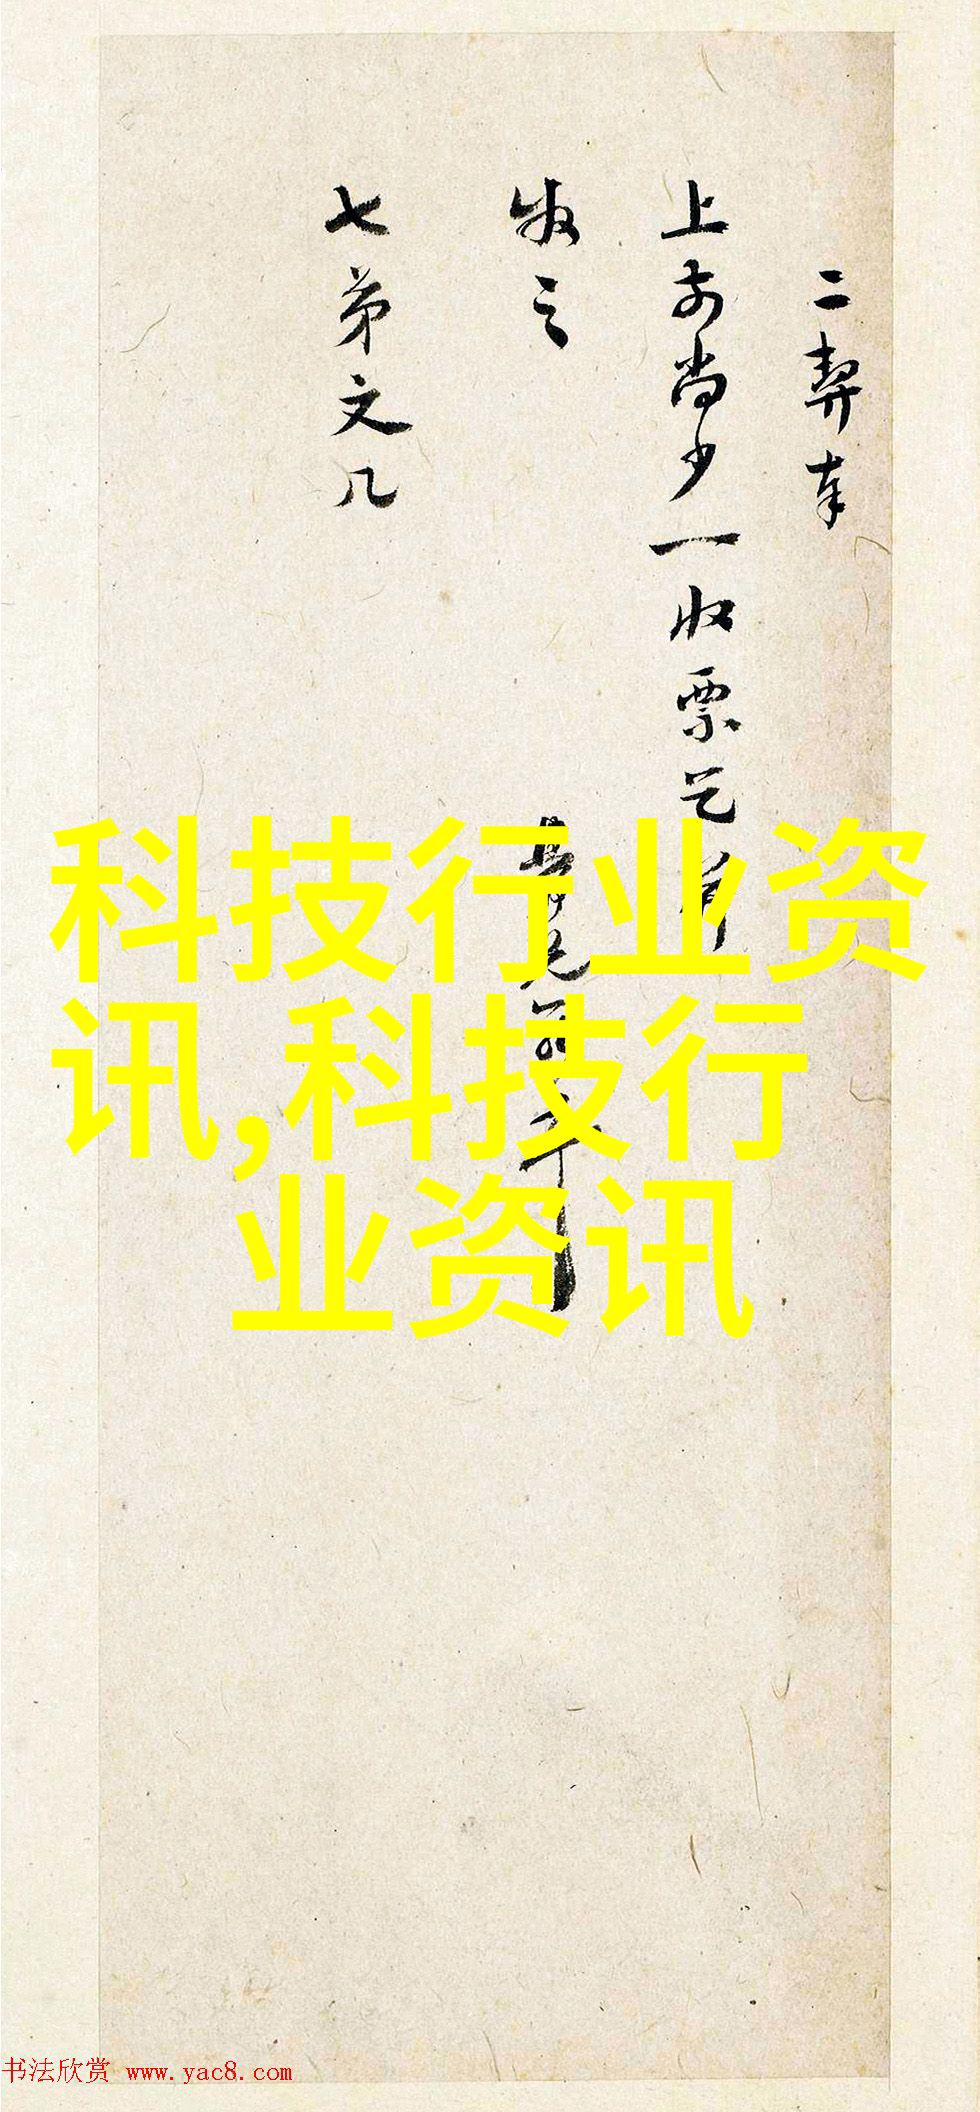 二契奉
上前尚少一收票乞
收之
七弟文几
科技行业资
讯,科技行
业资讯
书法欣赏 www.yac8.com